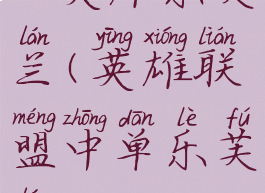 lán yīng xióng lián
兰(英雄联
méng zhōng dān lè fú
盟中单乐芙